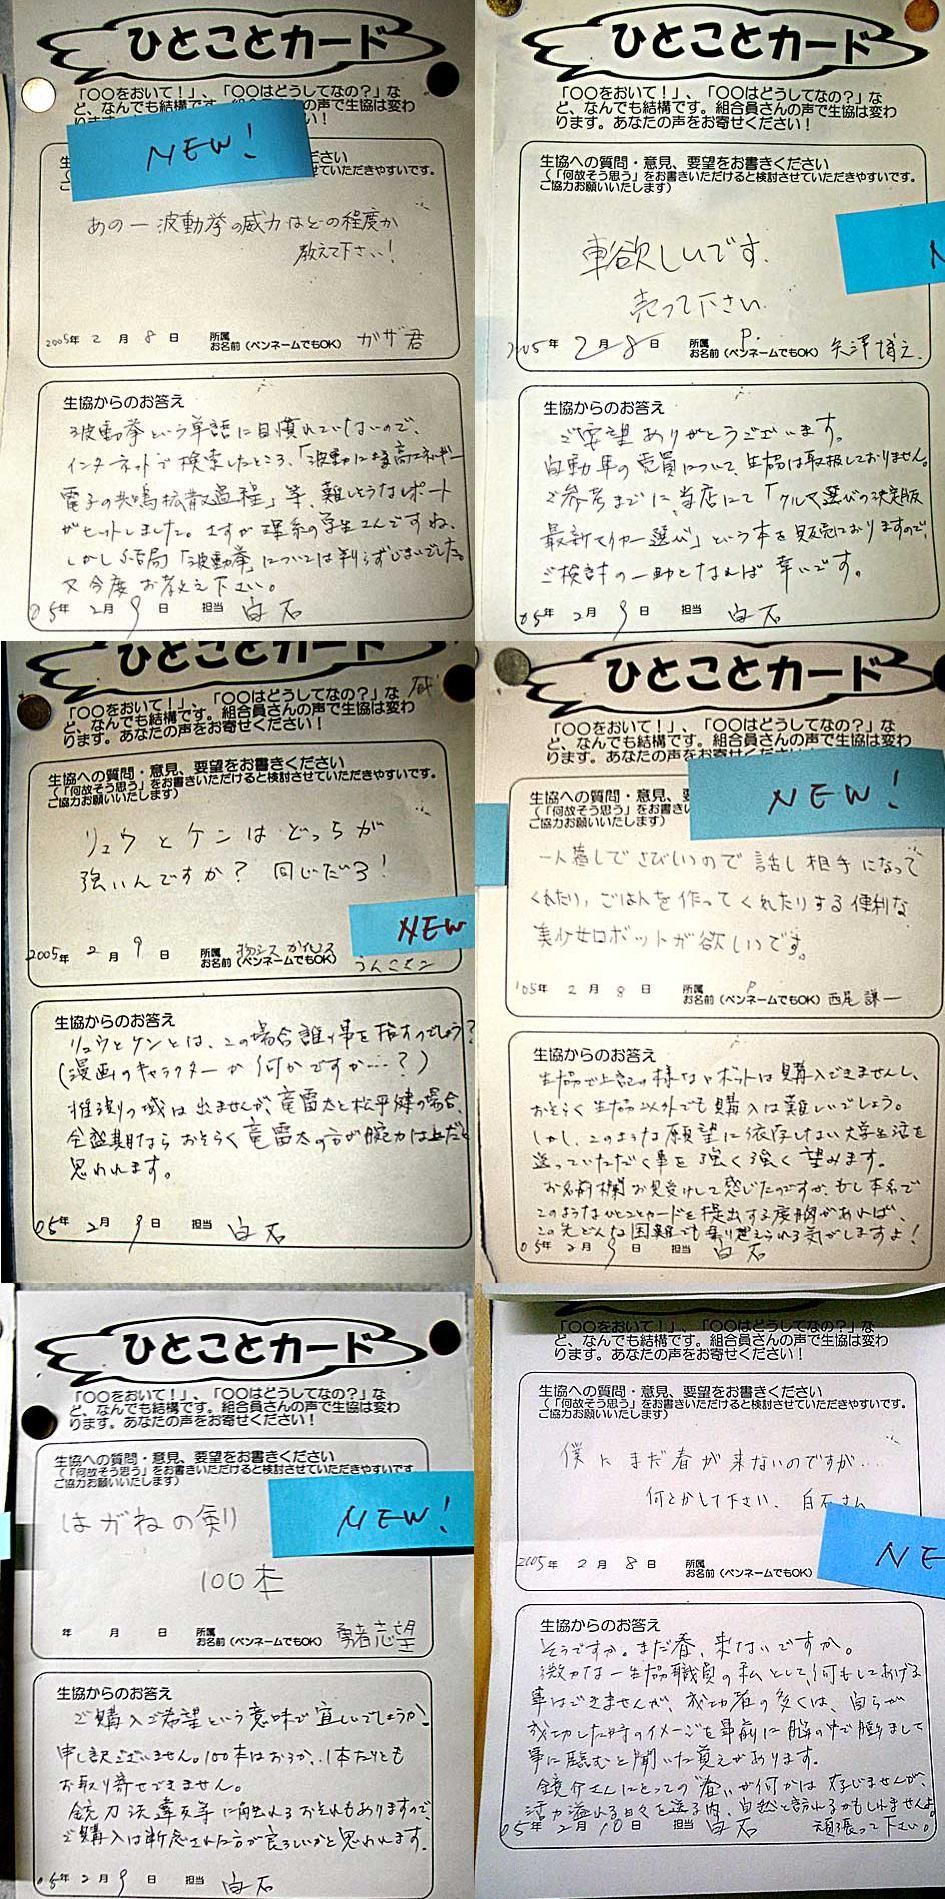 ひとことカード
「〇〇をおいて！」、「〇〇はどうしてなの？」な
ど、なんでも結構です。組合員さんの声で生協は変わ
い！
NEW!
書きください
せていただきやすいです。
あの一波動拳の威力はどの程度か
教えて下さい！
2005年 2月 8日 所属
お名前（ペンネームでもOK） ガザ君
生協からのお答え
波動拳という単語に目慣れていないので、
インターネットで検索したところ、「波動による高エネルギー
電子の共鳴拡散過程」等、難しそうなレポート
がヒットしました。さすが理系の学生さんですね、
しかし結局「波動拳」については判らずじまいでした。
又今度お教え下さい。
05年 2月 9日 担当 白石
ひとことカード
「〇〇をおいて！」、「〇〇はどうしてなの？」な
ど、なんでも結構です。組合員さんの声で生協は変わ
ります。あなたの声をお寄せください！
生協への質問・意見、要望をお書きください
（「何故そう思う」をお書きいただけると検討させていただきやすいです。
ご協力お願いいたします）
車欲しいです。
売って下さい。
2005年 2月 8日 所属 P.
お名前（ペンネームでもOK） 矢澤博之
生協からのお答え
ご要望ありがとうございます。
自動車の売買について、生協は取扱しておりません。
ご参考までに、当店にて「クルマ選びの決定版
最新マイカー選び」という本を販売しておりますので、
ご検討の一助となれば幸いです。
05年 2月 9日 担当 白石
ひとことカード
「〇〇をおいて！」、「〇〇はどうしてなの？」な
ど、なんでも結構です。組合員さんの声で生協は変わ
ります。あなたの声をお寄せください！
生協への質問・意見、要望をお書きください
（「何故そう思う」をお書きいただけると検討させていただきやすいです。
ご協力お願いいたします）
リュウとケンはどっちが
強いんですか？ 同じだろ！
NEW
2005年 2月 9日 所属 物シス ガイルス
お名前（ペンネームでもOK）
生協からのお答え
リュウとケンとは、この場合誰の事を指すのでしょう？
（漫画のキャラクターか何かですか…？）
推測の域は出ませんが、竜雷太と松平健の場合、
全盛期ならおそらく竜雷太の方が腕力は上だと
思われます。
05年 2月 9日 担当 白石
ひとことカード
「〇〇をおいて！」、「〇〇はどうしてなの？」な
ど、なんでも結構です。組合員さんの声で生協は変わ
ります。あなたの声をお寄せください！
NEW!
生協への質問・意見、要
（「何故そう思う」をお書き
ご協力お願いいたします）
一人暮しでさびしいので話し相手になって
くれたり、ごはんを作ってくれたりする便利な
美少女ロボットが欲しいです。
'05年 2月 8日 所属 P
お名前（ペンネームでもOK） 西尾謙一
生協からのお答え
生協で上記の様なロボットは購入できませんし、
おそらく生協以外でも購入は難しいでしょう。
しかし、このような願望に依存しない大学生活を
送っていただく事を強く強く望みます。
お名前欄お見受けして感じたのですが、もし本名で
このようなひとことカードを提出する度胸があれば、
この先どんな困難でも乗り越えられる気がしますよ！
05年 2月 9日 担当 白石
ひとことカード
「〇〇をおいて！」、「〇〇はどうしてなの？」な
ど、なんでも結構です。組合員さんの声で生協は変わ
ります。あなたの声をお寄せください！
生協への質問・意見、要望をお書きください
（「何故そう思う」をお書きいただけると検討させていただきやすいです
ご協力お願いいたします）
NEW!
はがねの剣
100本
年 月 日 所属
お名前（ペンネームでもOK） 勇者志望
生協からのお答え
ご購入ご希望という意味で宜しいでしょうか？
申し訳ございません。100本はおろか、1本たりとも
お取り寄せできません。
銃刀法違反等に触れるおそれもありますので、
ご購入は断念された方が良ろしいかと思われます。
05年 2月 9日 担当 白石
「〇〇をおいて！」、「〇〇はどうしてなの？」な
ど、なんでも結構です。組合員さんの声で生協は変わ
ります。あなたの声をお寄せください！
生協への質問・意見、要望をお書きください
（「何故そう思う」をお書きいただけると検討させていただきやすいです。
ご協力お願いいたします）
僕にまだ春が来ないのですが…
何とかして下さい、白石さん
2005年 2月 8日 所属
お名前（ペンネームでもOK）
NE
生協からのお答え
そうですか。まだ春、来ないですか。
微力な一生協職員の私として、何もしてあげる
事はできませんが、成功者の多くは、自らが
成功した時のイメージを事前に脳の中で膨らまして
事に臨むと聞いた覚えがあります。
鏡介さんにとっての"春"が何かは存じませんが、
活力溢れる日々を送る内、自然と訪れるかもしれませんよ。
05年 2月 10日 担当 白石 頑張って下さい。